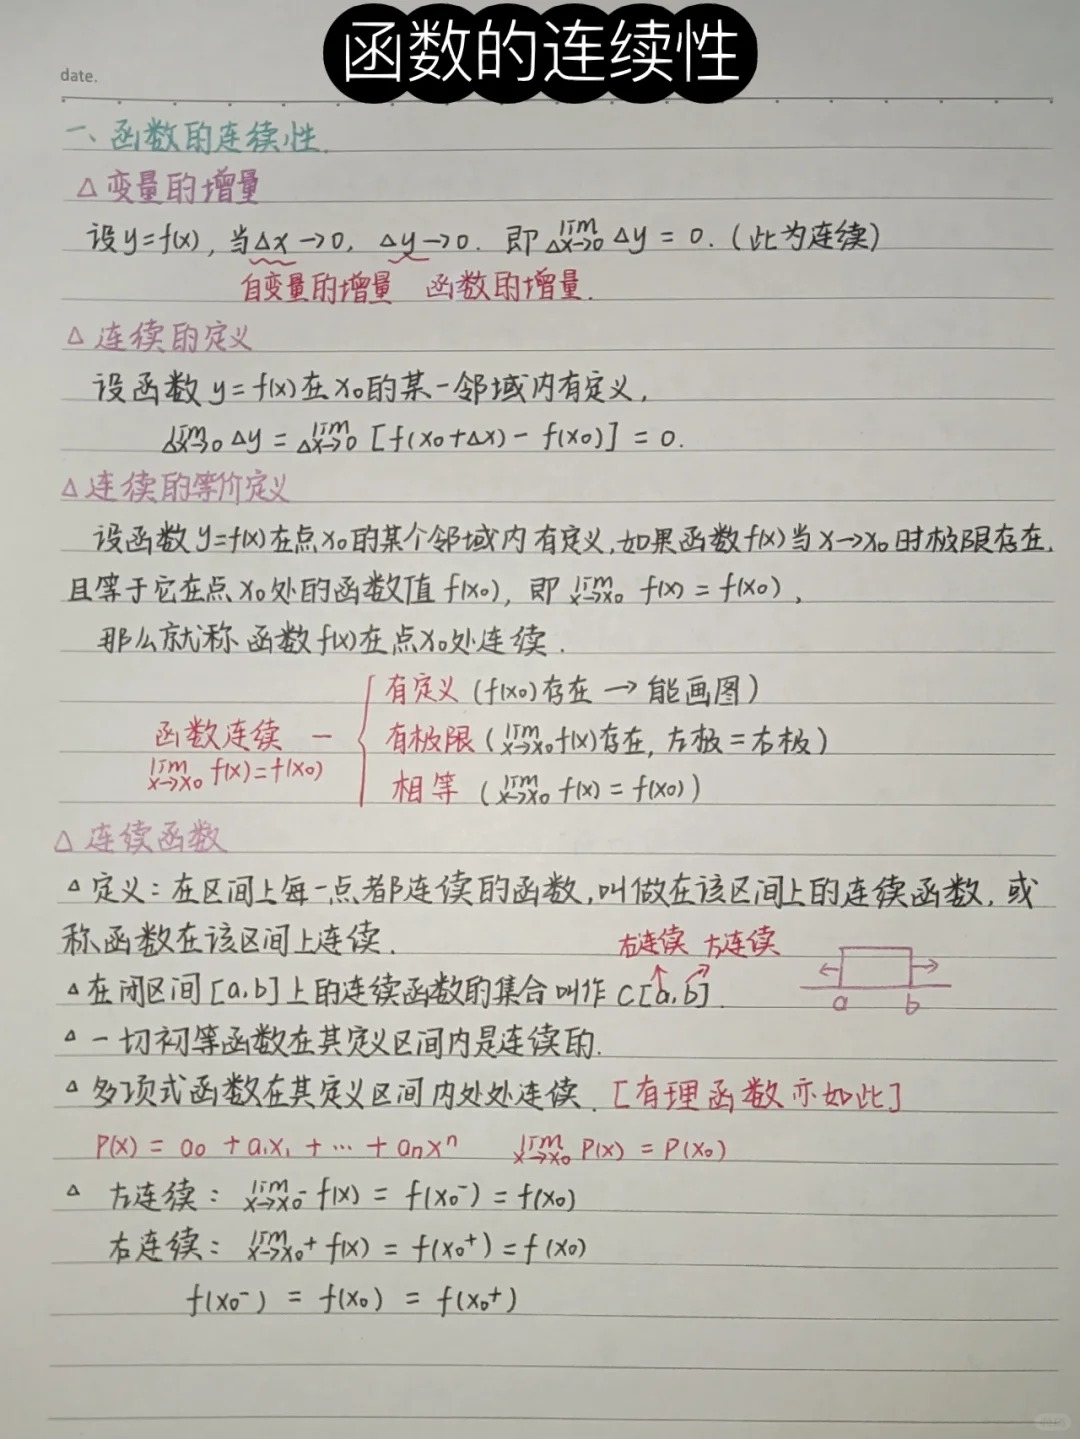 函数的连续性
date.
一、函数的连续性.
△ 变量的增量
设y=f(x), 当△x→0, △y→0. 即 lim △x→0 △y = 0. (此为连续)
自变量的增量 函数的增量.
△ 连续的定义
设函数 y=f(x)在x₀的某一邻域内有定义,
lim △x→0 △y = lim △x→0 [f(x₀+△x)- f(x₀)] = 0.
△ 连续的等价定义
设函数y=f(x)在点x₀的某个邻域内有定义,如果函数f(x)当x→x₀时极限存在,
且等于它在点x₀处的函数值f(x₀), 即 lim x→x₀ f(x) = f(x₀),
那么就称函数f(x)在点x₀处连续.
有定义 (f(x₀)存在 → 能画图)
函数连续 — 有极限 (lim x→x₀ f(x)存在, 左极=右极)
lim x→x₀ f(x)=f(x₀) 相等 (lim x→x₀ f(x) = f(x₀))
△ 连续函数
△ 定义:在区间上每一点都连续的函数,叫做在该区间上的连续函数, 或
称函数在该区间上连续.
右连续 左连续
△在闭区间[a,b]上的连续函数的集合叫作 C[a,b].
a b
△一切初等函数在其定义区间内是连续的.
△ 多项式函数在其定义区间内处处连续. [有理函数亦如此]
P(x) = a₀ + a₁x₁ + … + aₙxⁿ lim x→x₀ P(x) = P(x₀)
△ 左连续: lim x→x₀⁻ f(x) = f(x₀⁻) = f(x₀)
右连续: lim x→x₀⁺ f(x) = f(x₀⁺) = f(x₀)
f(x₀⁻) = f(x₀) = f(x₀⁺)